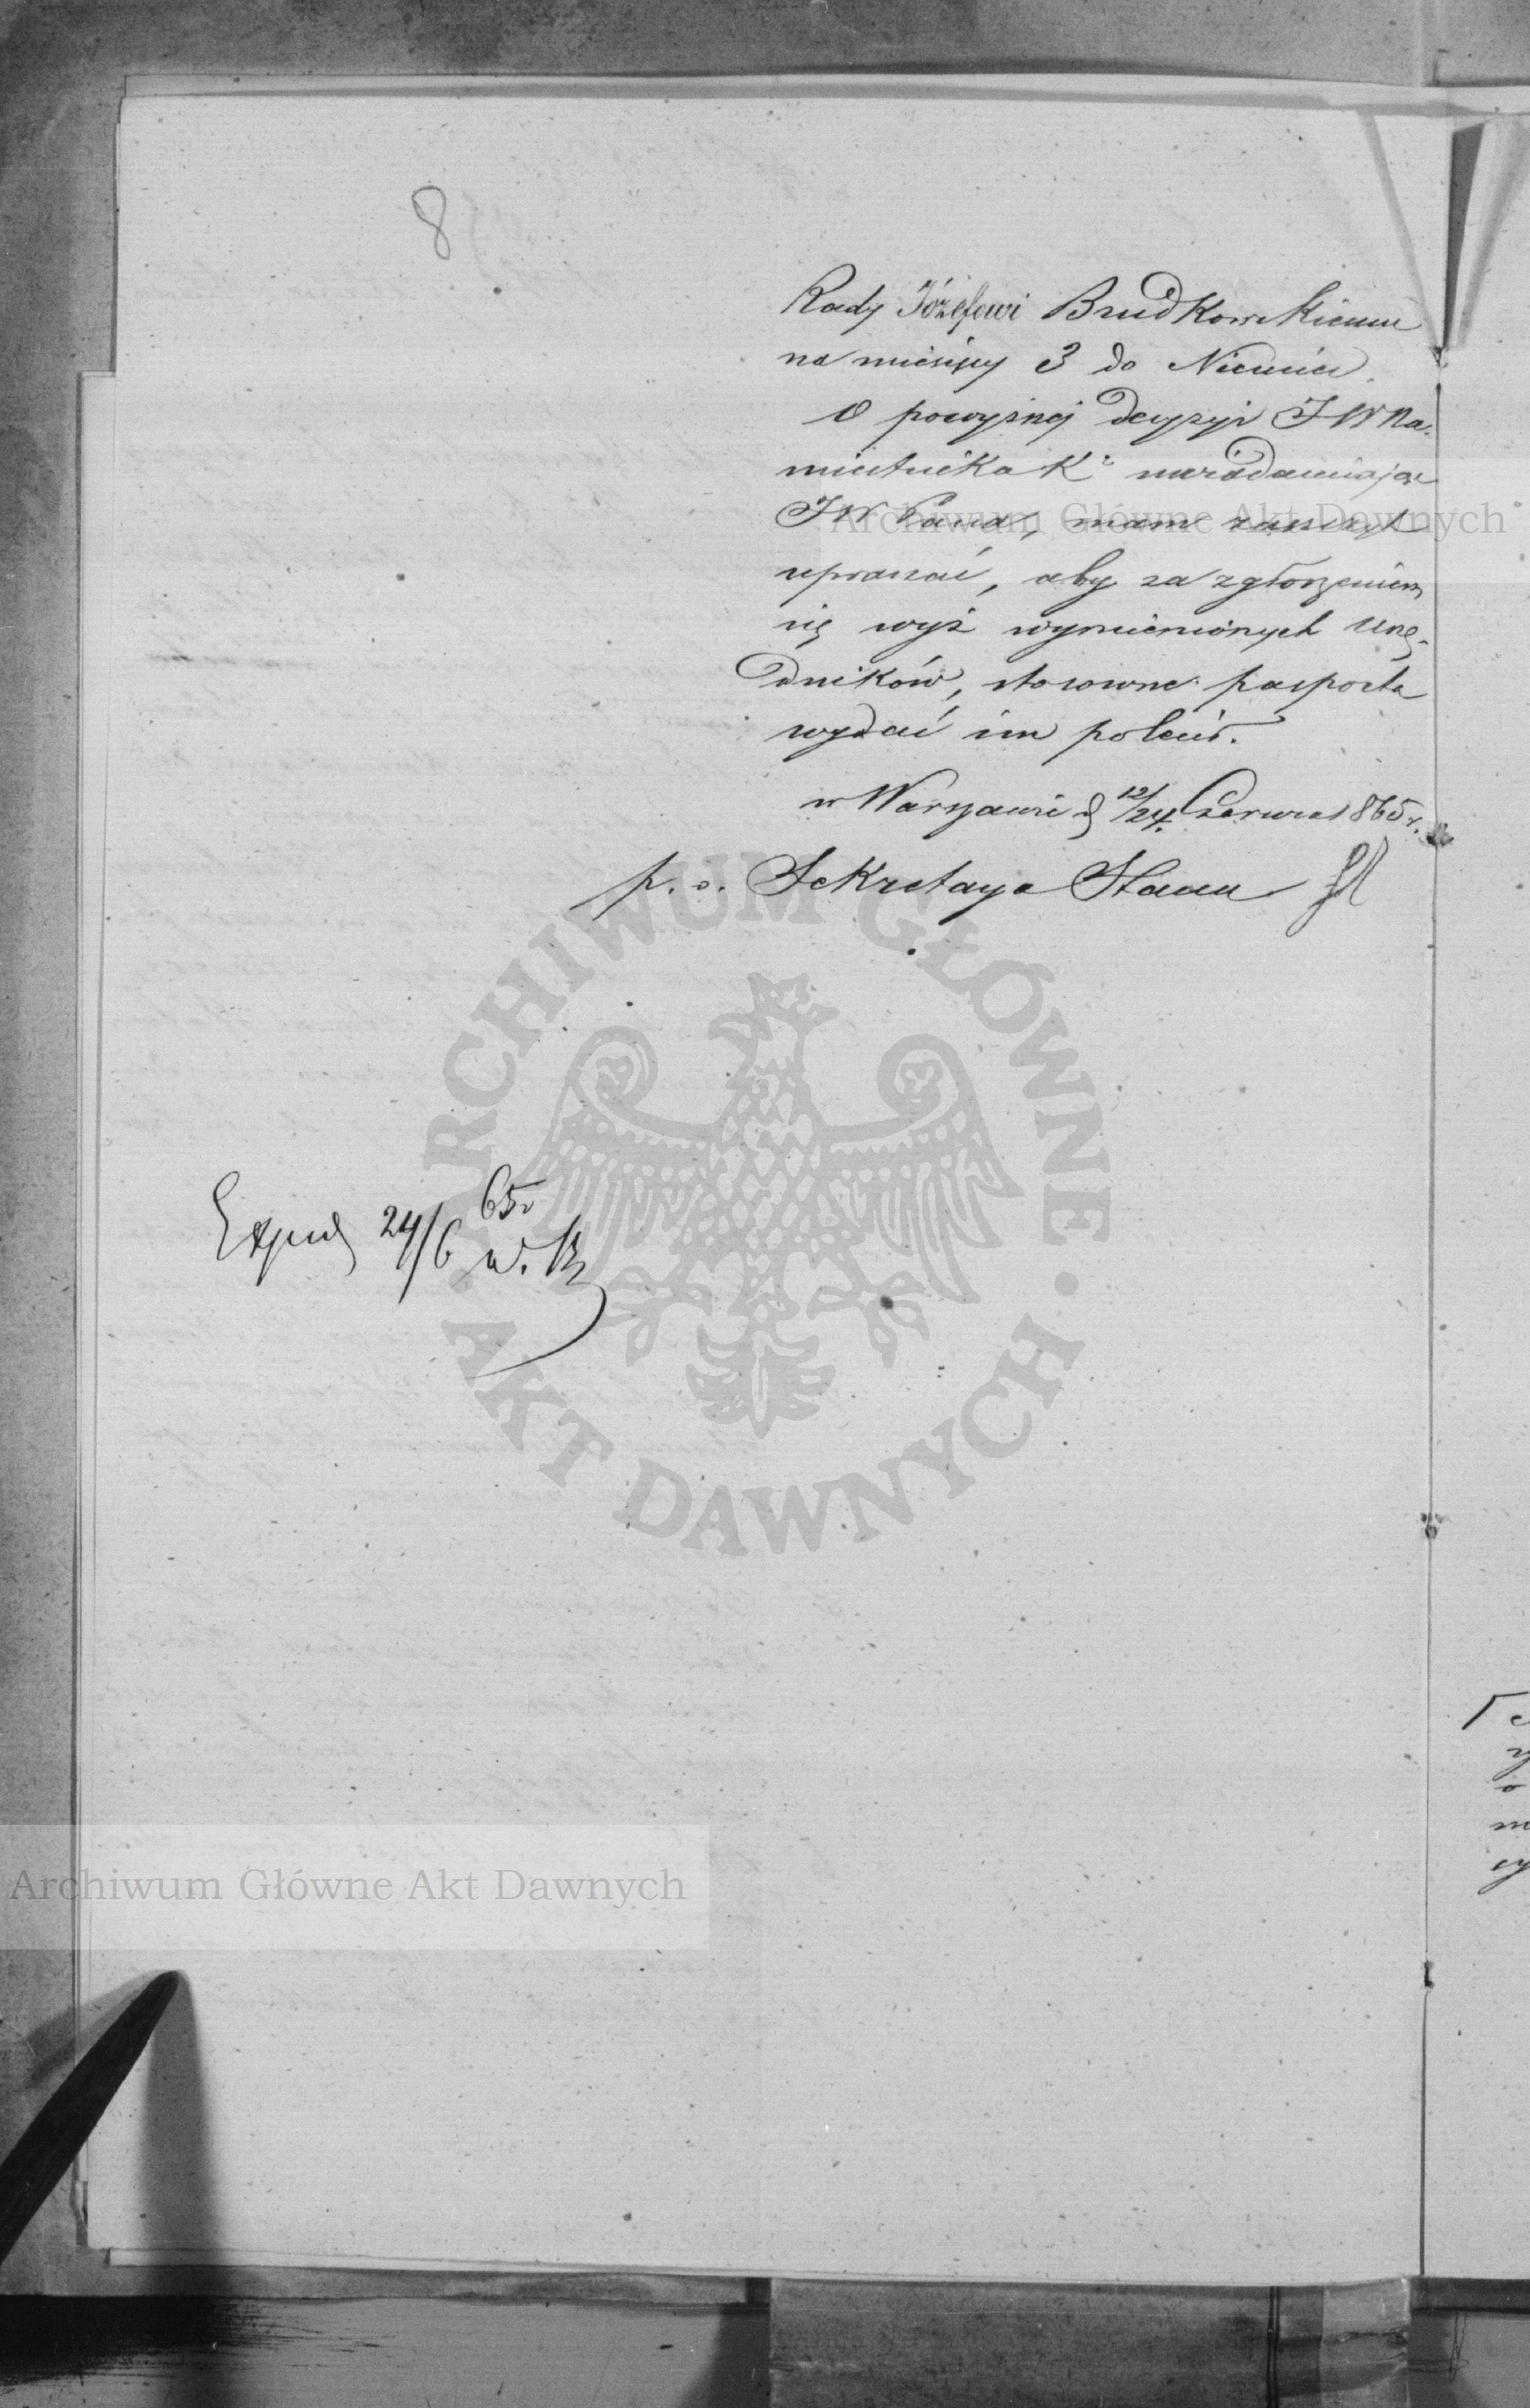 8
Rady Józefowi Brudkowskiemu
na miesięcy 3 do Niemiec.
O powyższej decyzyi JW Na-
miestnika K. uwiadamiając
JW Pana, mam zaszczyt
upraszać, aby za zgłoszeniem
się wyż wymienionych Urzę-
dników, stosowne pasporta
wydać im polecił.
w Warszawie d. 12/24 Czerwca 1865 r.
p. o. Sekretarza Stanu
Exped 24/6 65 r
Archiwum Główne Akt Dawnych
ARCHIWUM GŁÓWNE • AKT DAWNYCH •
Archiwum Główne Akt Dawnych